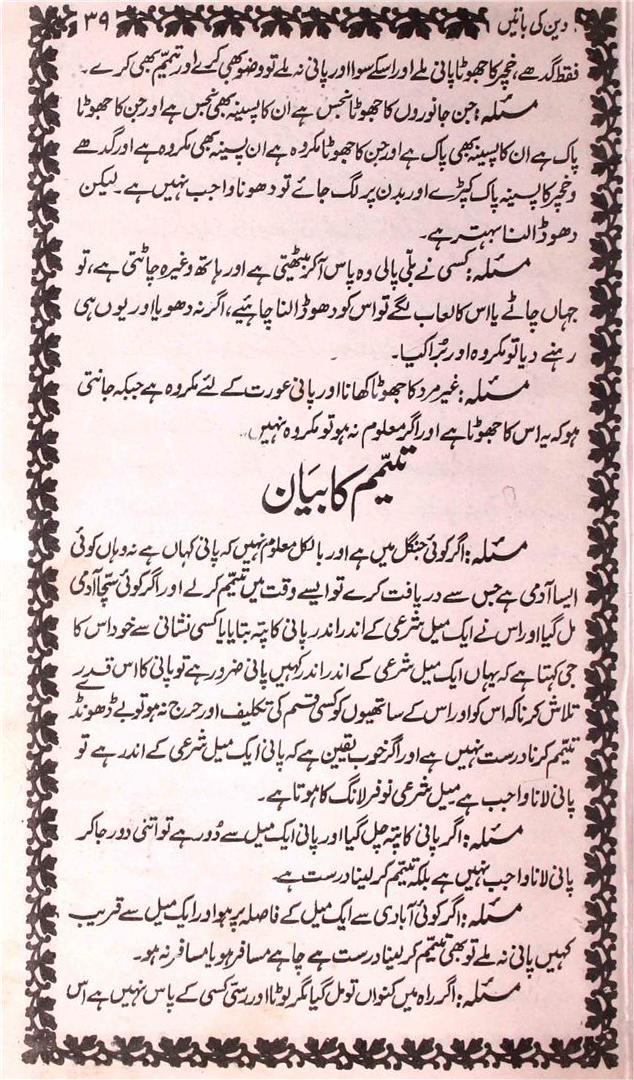 دین کی باتیں ۳۹
فقط گدھے، خچر کا جھوٹا پانی ملے اور اسکے سوا اور پانی نہ ملے تو وضو بھی کرے اور تیمّم بھی کرے۔
مسئلہ: جن جانوروں کا جھوٹا نجس ہے ان کا پسینہ بھی نجس ہے اور جن کا جھوٹا
پاک ہے ان کا پسینہ بھی پاک ہے اور جن کا جھوٹا مکروہ ہے ان پسینہ بھی مکروہ ہے اور گدھے
و خچر کا پسینہ پاک کپڑے اور بدن پر لگ جائے تو دھونا واجب نہیں ہے۔ لیکن
دھو ڈالنا بہتر ہے۔
مسئلہ: کسی نے بلّی پالی وہ پاس آکر بیٹھتی ہے اور ہاتھ وغیرہ چاٹتی ہے، تو
جہاں چاٹے یا اس کا لعاب لگے تو اس کو دھو ڈالنا چاہئیے، اگر نہ دھویا اور یوں ہی
رہنے دیا تو مکروہ اور بُرا کیا۔
مسئلہ: غیر مرد کا جھوٹا کھانا اور پانی عورت کے لئے مکروہ ہے جبکہ جانتی
ہو کہ یہ اس کا جھوٹا ہے اور اگر معلوم نہ ہو تو مکروہ نہیں۔
تیمّم کا بیَان
مسئلہ: اگر کوئی جنگل میں ہے اور بالکل معلوم نہیں کہ پانی کہاں ہے نہ وہاں کوئی
ایسا آدمی ہے جس سے دریافت کرے تو ایسے وقت میں تیمّم کرلے اور اگر کوئی سچّا آدمی
مل گیا اور اس نے ایک میل شرعی کے اندر اندر پانی کا پتہ بتایا یا کسی نشانی سے خود اس کا
جی کہتا ہے کہ یہاں ایک میل شرعی کے اندر اندر کہیں پانی ضرور ہے تو پانی کا اس قدر
تلاش کرنا کہ اس کو اور اس کے ساتھیوں کو کسی قسم کی تکلیف اور حرج نہ ہو تو بے ڈھونڈے
تیمّم کرنا درست نہیں ہے اور اگر خوب یقین ہے کہ پانی ایک میل شرعی کے اندر ہے تو
پانی لانا واجب ہے۔ میل شرعی نو فرلانگ کا ہوتا ہے۔
مسئلہ: اگر پانی کا پتہ چل گیا اور پانی ایک میل سے دُور ہے تو اتنی دور جا کر
پانی لانا واجب نہیں ہے بلکہ تیمّم کر لینا درست ہے۔
مسئلہ: اگر کوئی آبادی سے ایک میل کے فاصلہ پر ہو اور ایک میل سے قریب
کہیں پانی نہ ملے تو بھی تیمّم کر لینا درست ہے چاہے مسافر ہو یا مسافر نہ ہو۔
مسئلہ: اگر راہ میں کنواں تو مل گیا مگر لوٹا اور رسّی کسی کے پاس نہیں ہے اس